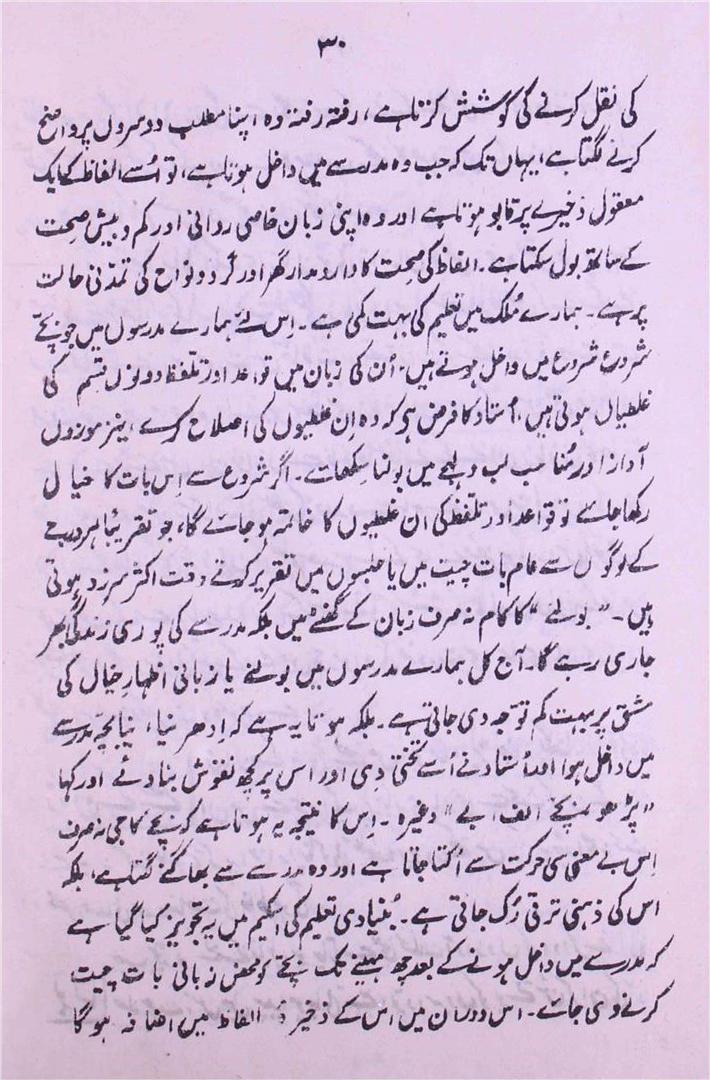 ۳۰
کی نقل کرنے کی کوشش کرتا ہے، رفتہ رفتہ وہ اپنا مطلب دوسروں پر واضح
کرنے لگتا ہے، یہاں تک کہ جب وہ مدرسے میں داخل ہوتا ہے، تو اُسے الفاظ کے ایک
معقول ذخیرے پر قابو ہوتا ہے اور وہ اپنی زبان خاصی روانی اور کم و بیش صحت
کے ساتھ بول سکتا ہے۔ الفاظ کی صحت کا دار و مدار گھر اور گرد و نواح کی تمدّنی حالت
پر ہے۔ ہمارے مُلک میں تعلیم کی بہت کمی ہے۔ اِس لئے ہمارے مدرسوں میں جو بچّے
شروع شروع میں داخل ہوتے ہیں۔ اُن کی زبان میں قواعد اور تلفظ دونوں قسم کی
غلطیاں ہوتی ہیں، اُستاد کا فرض ہو کہ وہ اِن غلطیوں کی اصلاح کرے، نیز موزوں
آواز اور مُناسب لب و لہجے میں بولنا سکھائے۔ اگر شروع سے اِس بات کا خیال
رکھا جائے تو قواعد اور تلفظ کی ان غلطیوں کا خاتمہ ہو جائے گا، جو تقریباً ہر درجے
کے لوگوں سے عام بات چیت میں یا جلسوں میں تقریر کرتے وقت اکثر سرزد ہوتی
ہیں۔ "بولنے" کا کام نہ صرف زبان کے گھنٹے میں بلکہ مدرسے کی پوری زندگی بھر
جاری رہے گا۔ آج کل ہمارے مدرسوں میں بولنے یا زبانی اظہارِ خیال کی
مشق پر بہت کم توجّہ دی جاتی ہے۔ بلکہ ہوتا یہ ہے کہ اِدھر نیا، نیا بچّہ مدرسے
میں داخل ہوا اور اُستاد نے اُسے تختی دی اور اس پر کچھ نقوش بنا دئے اور کہا
"پڑھو بچّے الف، بے" وغیرہ۔ اِس کا نتیجہ یہ ہوتا ہے کہ بچّے کا جی نہ صرف
اِس بے معنی سی حرکت سے اُکتا جاتا ہے اور وہ مدرسے سے بھاگنے لگتا ہے، بلکہ
اس کی ذہنی ترقی رُک جاتی ہے۔ بُنیادی تعلیم کی اسکیم میں یہ تجویز کیا گیا ہے
کہ مدرسے میں داخل ہونے کے بعد چھ مہینے تک بچّے کو محض زبانی بات چیت
کرنے دی جائے۔ اس دوران میں اس کے ذخیرۂ الفاظ میں اضافہ ہو گا